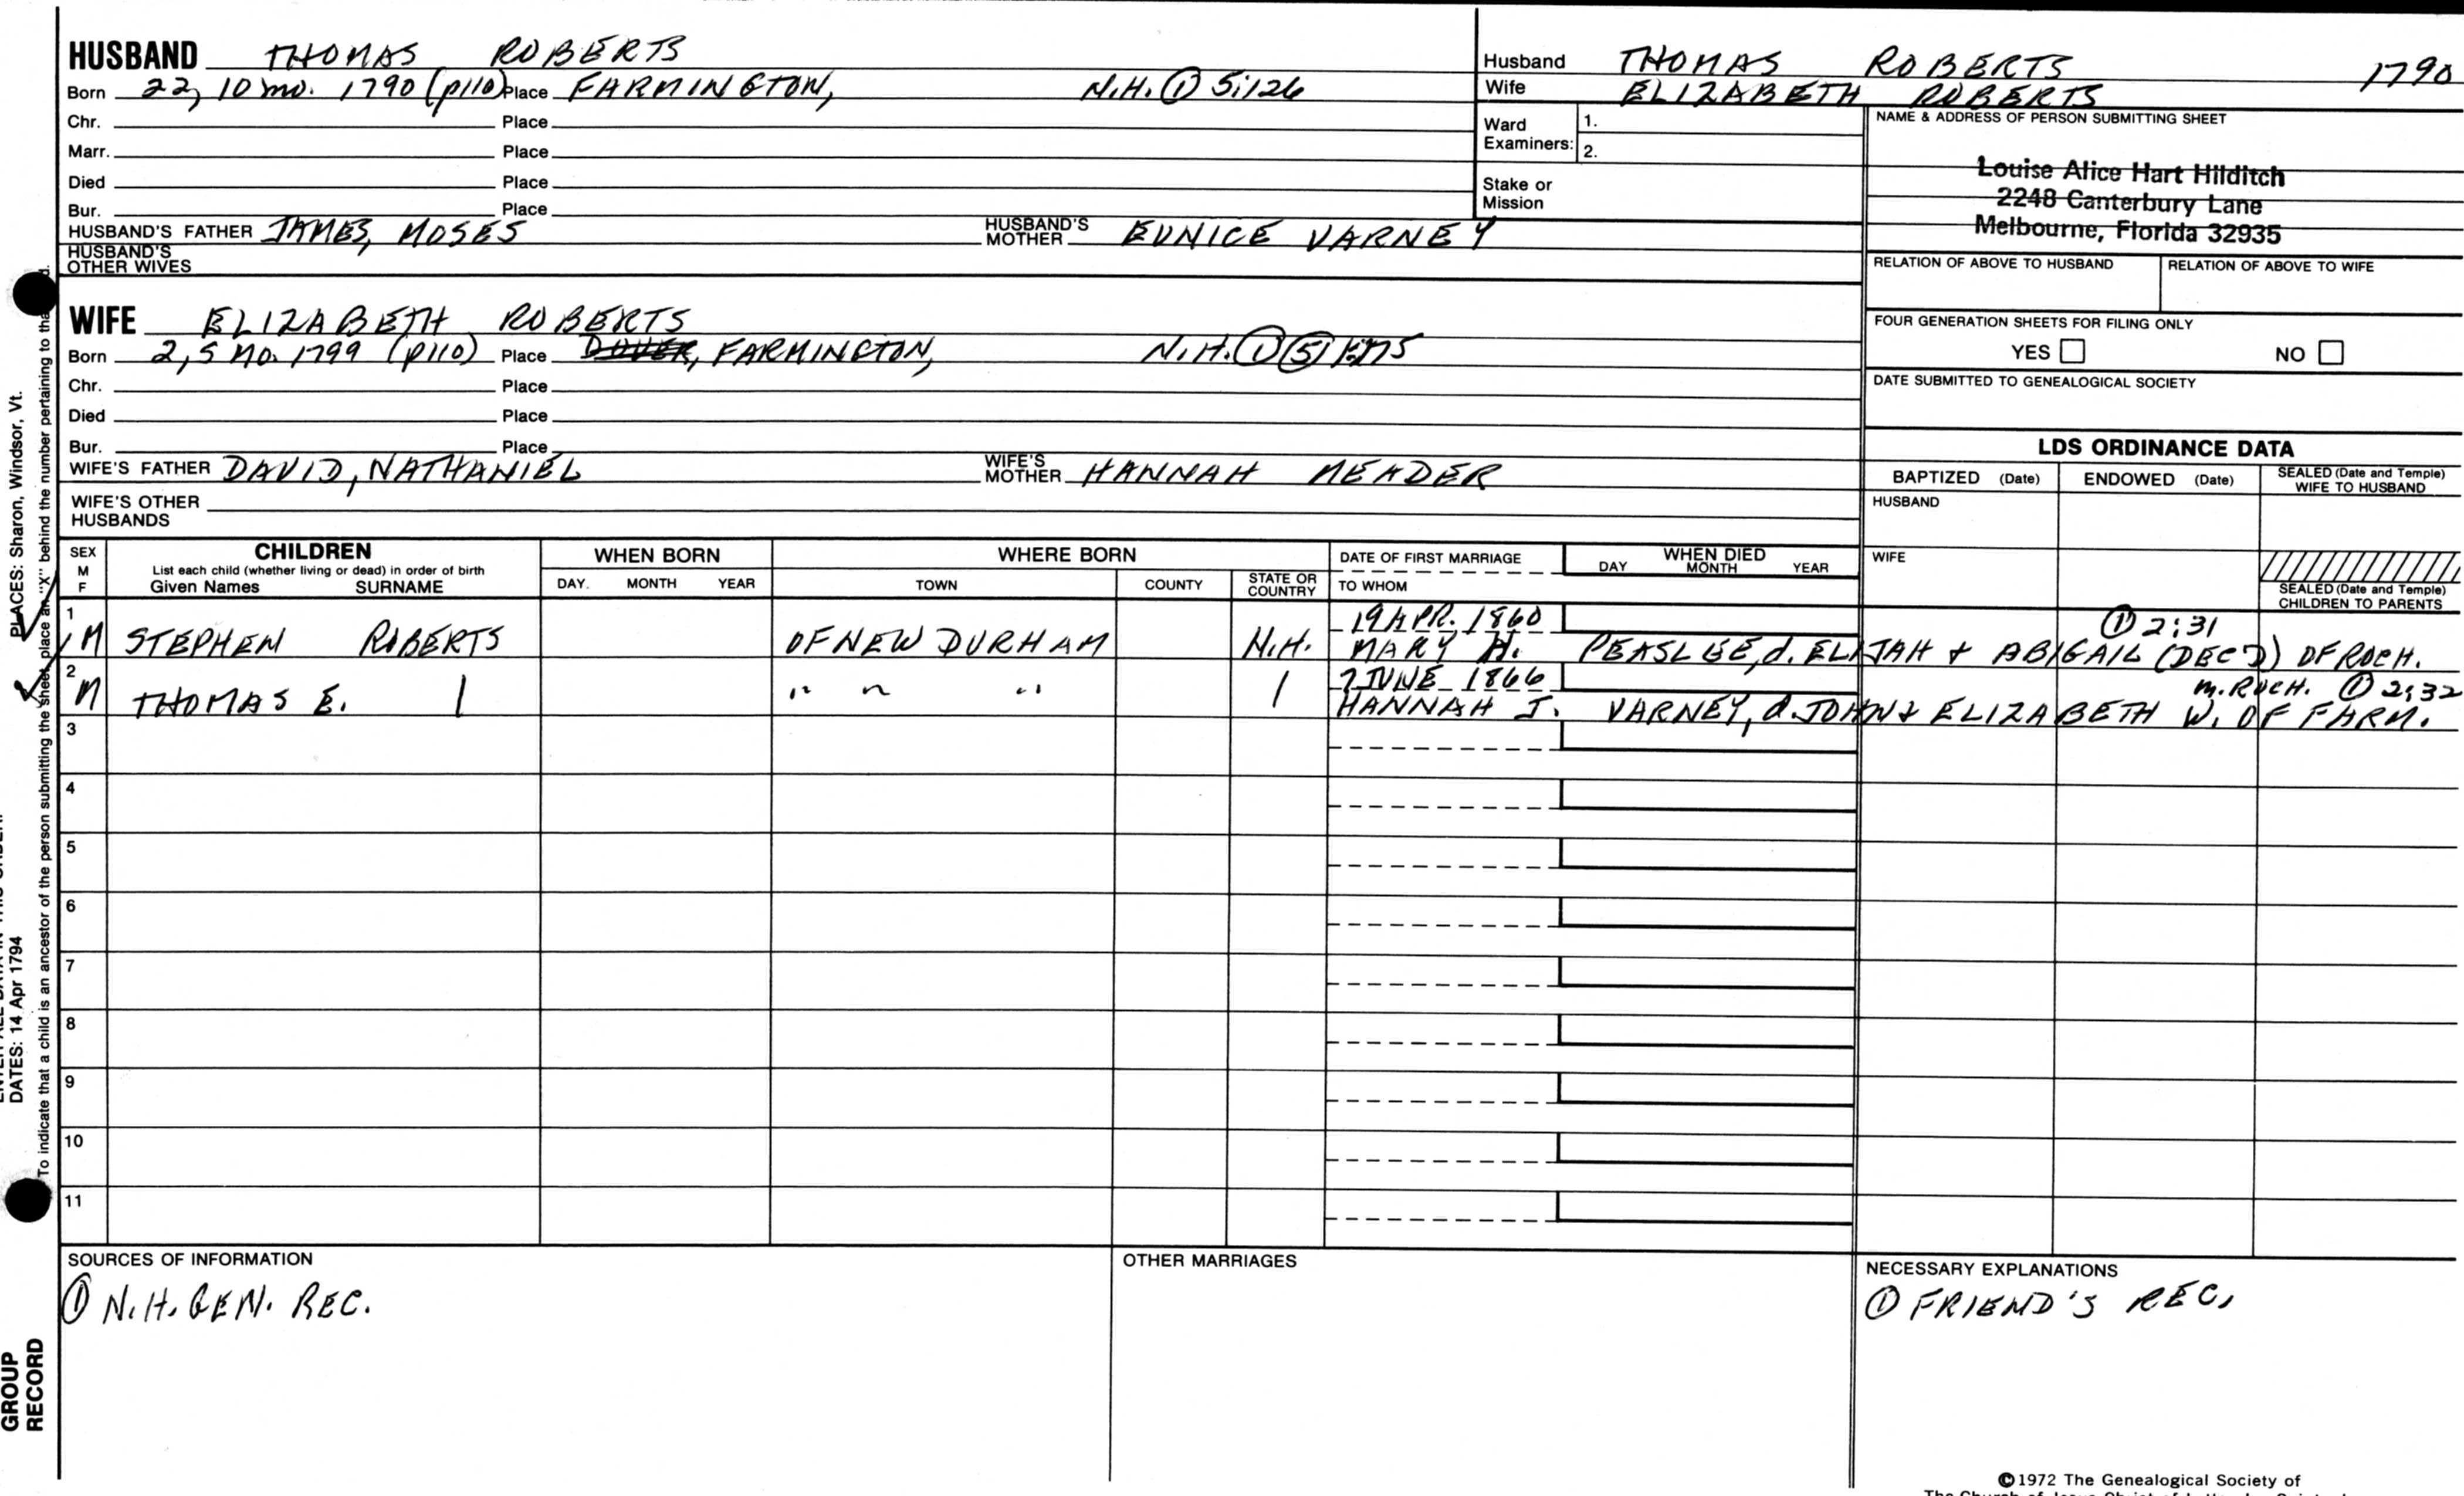 HUSBAND THOMAS ROBERTS
Born 22, 10 mo. 1790 (p110) Place FARMINGTON, N.H. ① 5:126
Chr. Place
Marr. Place
Died Place
Bur. Place
HUSBAND'S FATHER JAMES, MOSES HUSBAND'S MOTHER EUNICE VARNEY
HUSBAND'S OTHER WIVES
WIFE ELIZABETH ROBERTS
Born 2, 5 MO. 1799 (p110) Place DOVER, FARMINGTON, N.H. ① ⑤
Chr. Place
Died Place
Bur. Place
WIFE'S FATHER DAVID, NATHANIEL WIFE'S MOTHER HANNAH MEADER
WIFE'S OTHER HUSBANDS
Husband THOMAS ROBERTS 1790
Wife ELIZABETH ROBERTS
Ward Examiners: 1.
2.
Stake or Mission
NAME & ADDRESS OF PERSON SUBMITTING SHEET
Louise Alice Hart Hilditch
2248 Canterbury Lane
Melbourne, Florida 32935
RELATION OF ABOVE TO HUSBAND RELATION OF ABOVE TO WIFE
FOUR GENERATION SHEETS FOR FILING ONLY
YES NO
DATE SUBMITTED TO GENEALOGICAL SOCIETY
LDS ORDINANCE DATA
BAPTIZED (Date) ENDOWED (Date) SEALED (Date and Temple) WIFE TO HUSBAND
HUSBAND
WIFE
SEALED (Date and Temple) CHILDREN TO PARENTS
SEX M F
CHILDREN
List each child (whether living or dead) in order of birth
Given Names SURNAME
WHEN BORN
DAY. MONTH YEAR
WHERE BORN
TOWN COUNTY STATE OR COUNTRY
DATE OF FIRST MARRIAGE
TO WHOM
WHEN DIED
DAY MONTH YEAR
1 19 APR. 1860 ① 2:31
M STEPHEN ROBERTS OF NEW DURHAM N.H. MARY H. PEASLEE, d. ELIJAH + ABIGAIL (DEC'D) OF ROCH.
2 7 JUNE 1866 m. ROCH. ① 2:32
M THOMAS E. | " " " | HANNAH J. VARNEY, d. JOHN + ELIZABETH W. OF FARM.
3
4
5
6
7
8
9
10
11
SOURCES OF INFORMATION
① N.H. GEN. REC.
OTHER MARRIAGES
NECESSARY EXPLANATIONS
① FRIEND'S REC.
©1972 The Genealogical Society of
PLACES: Sharon, Windsor, Vt.
DATES: 14 Apr 1794
To indicate that a child is an ancestor of the person submitting the sheet, place an "X" behind the number pertaining to that
GROUP RECORD